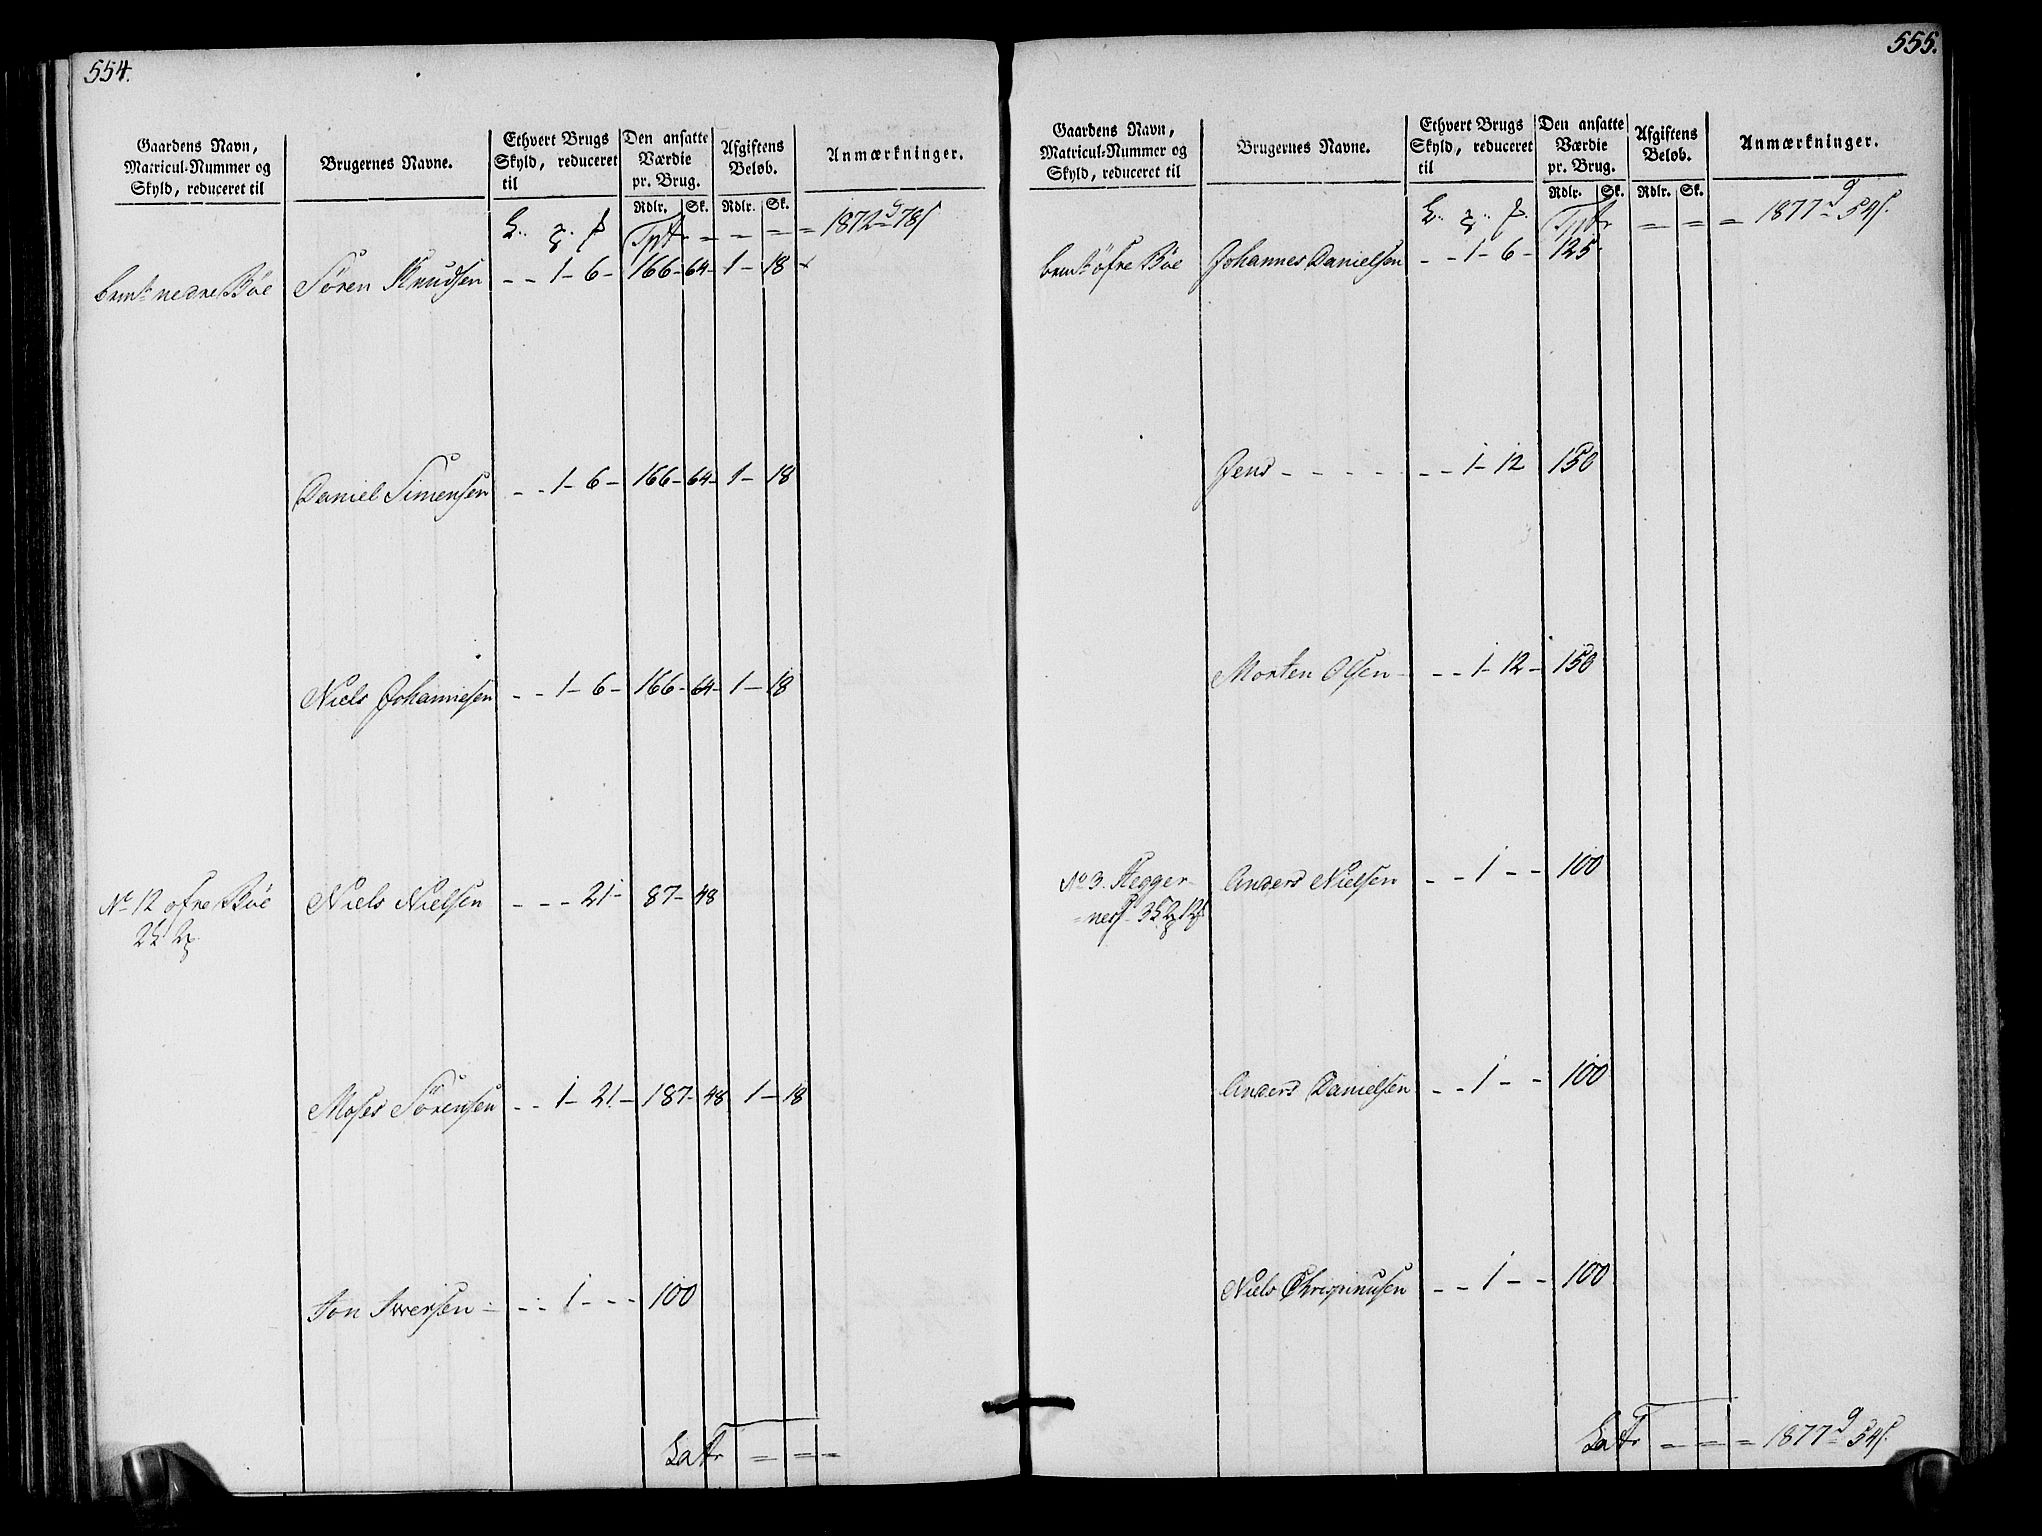 554.
Gaardens Navn, Matricul-Nummer og Skyld, reduceret til | Brugernes Navne. | Ethvert Brugs Skyld, reduceret til | Den ansatte Værdie pr. Brug. Rdlr. Sk. | Afgiftens Beløb. Rdlr. Sk. | Anmærkninger.
Tptr = = = = 1872 d 78 s
bemte nedre Bøe Søren Knudsen - - 1 - 6 - 166 - 64 - 1 - 18
Daniel Simensen - - 1 - 6 - 166 - 64 - 1 - 18
Niels Johannesen - - 1 - 6 - 166 - 64 - 1 - 18
No 12 øfre Bøe Niels Nielsen - - - 21 - 87 - 48
Moses Sørensen - - 1 - 21 - 187 - 48 1 - 18
Jon Iwersen - - - 1 - - - 100
Latr = = =
555.
Gaardens Navn, Matricul-Nummer og Skyld, reduceret til | Brugernes Navne. | Ethvert Brugs Skyld, reduceret til | Den ansatte Værdie pr. Brug. Rdlr. Sk. | Afgiftens Beløb. Rdlr. Sk. | Anmærkninger.
Tptr = = = 1877 d 54 s.
bemte øfre Bøe Johannes Danielsen - - 1 - 6 - 125 -
Jens - - - - - - 1 - 12 150
Morten Olsen - - - 1 - 12 - 150
No 3. Hegger- Anders Nielsen - - 1 - - 100
Anders Danielsen - - 1 - - 100
Niels - - 1 - - 100
Latr = = = 1877 d 54 s.